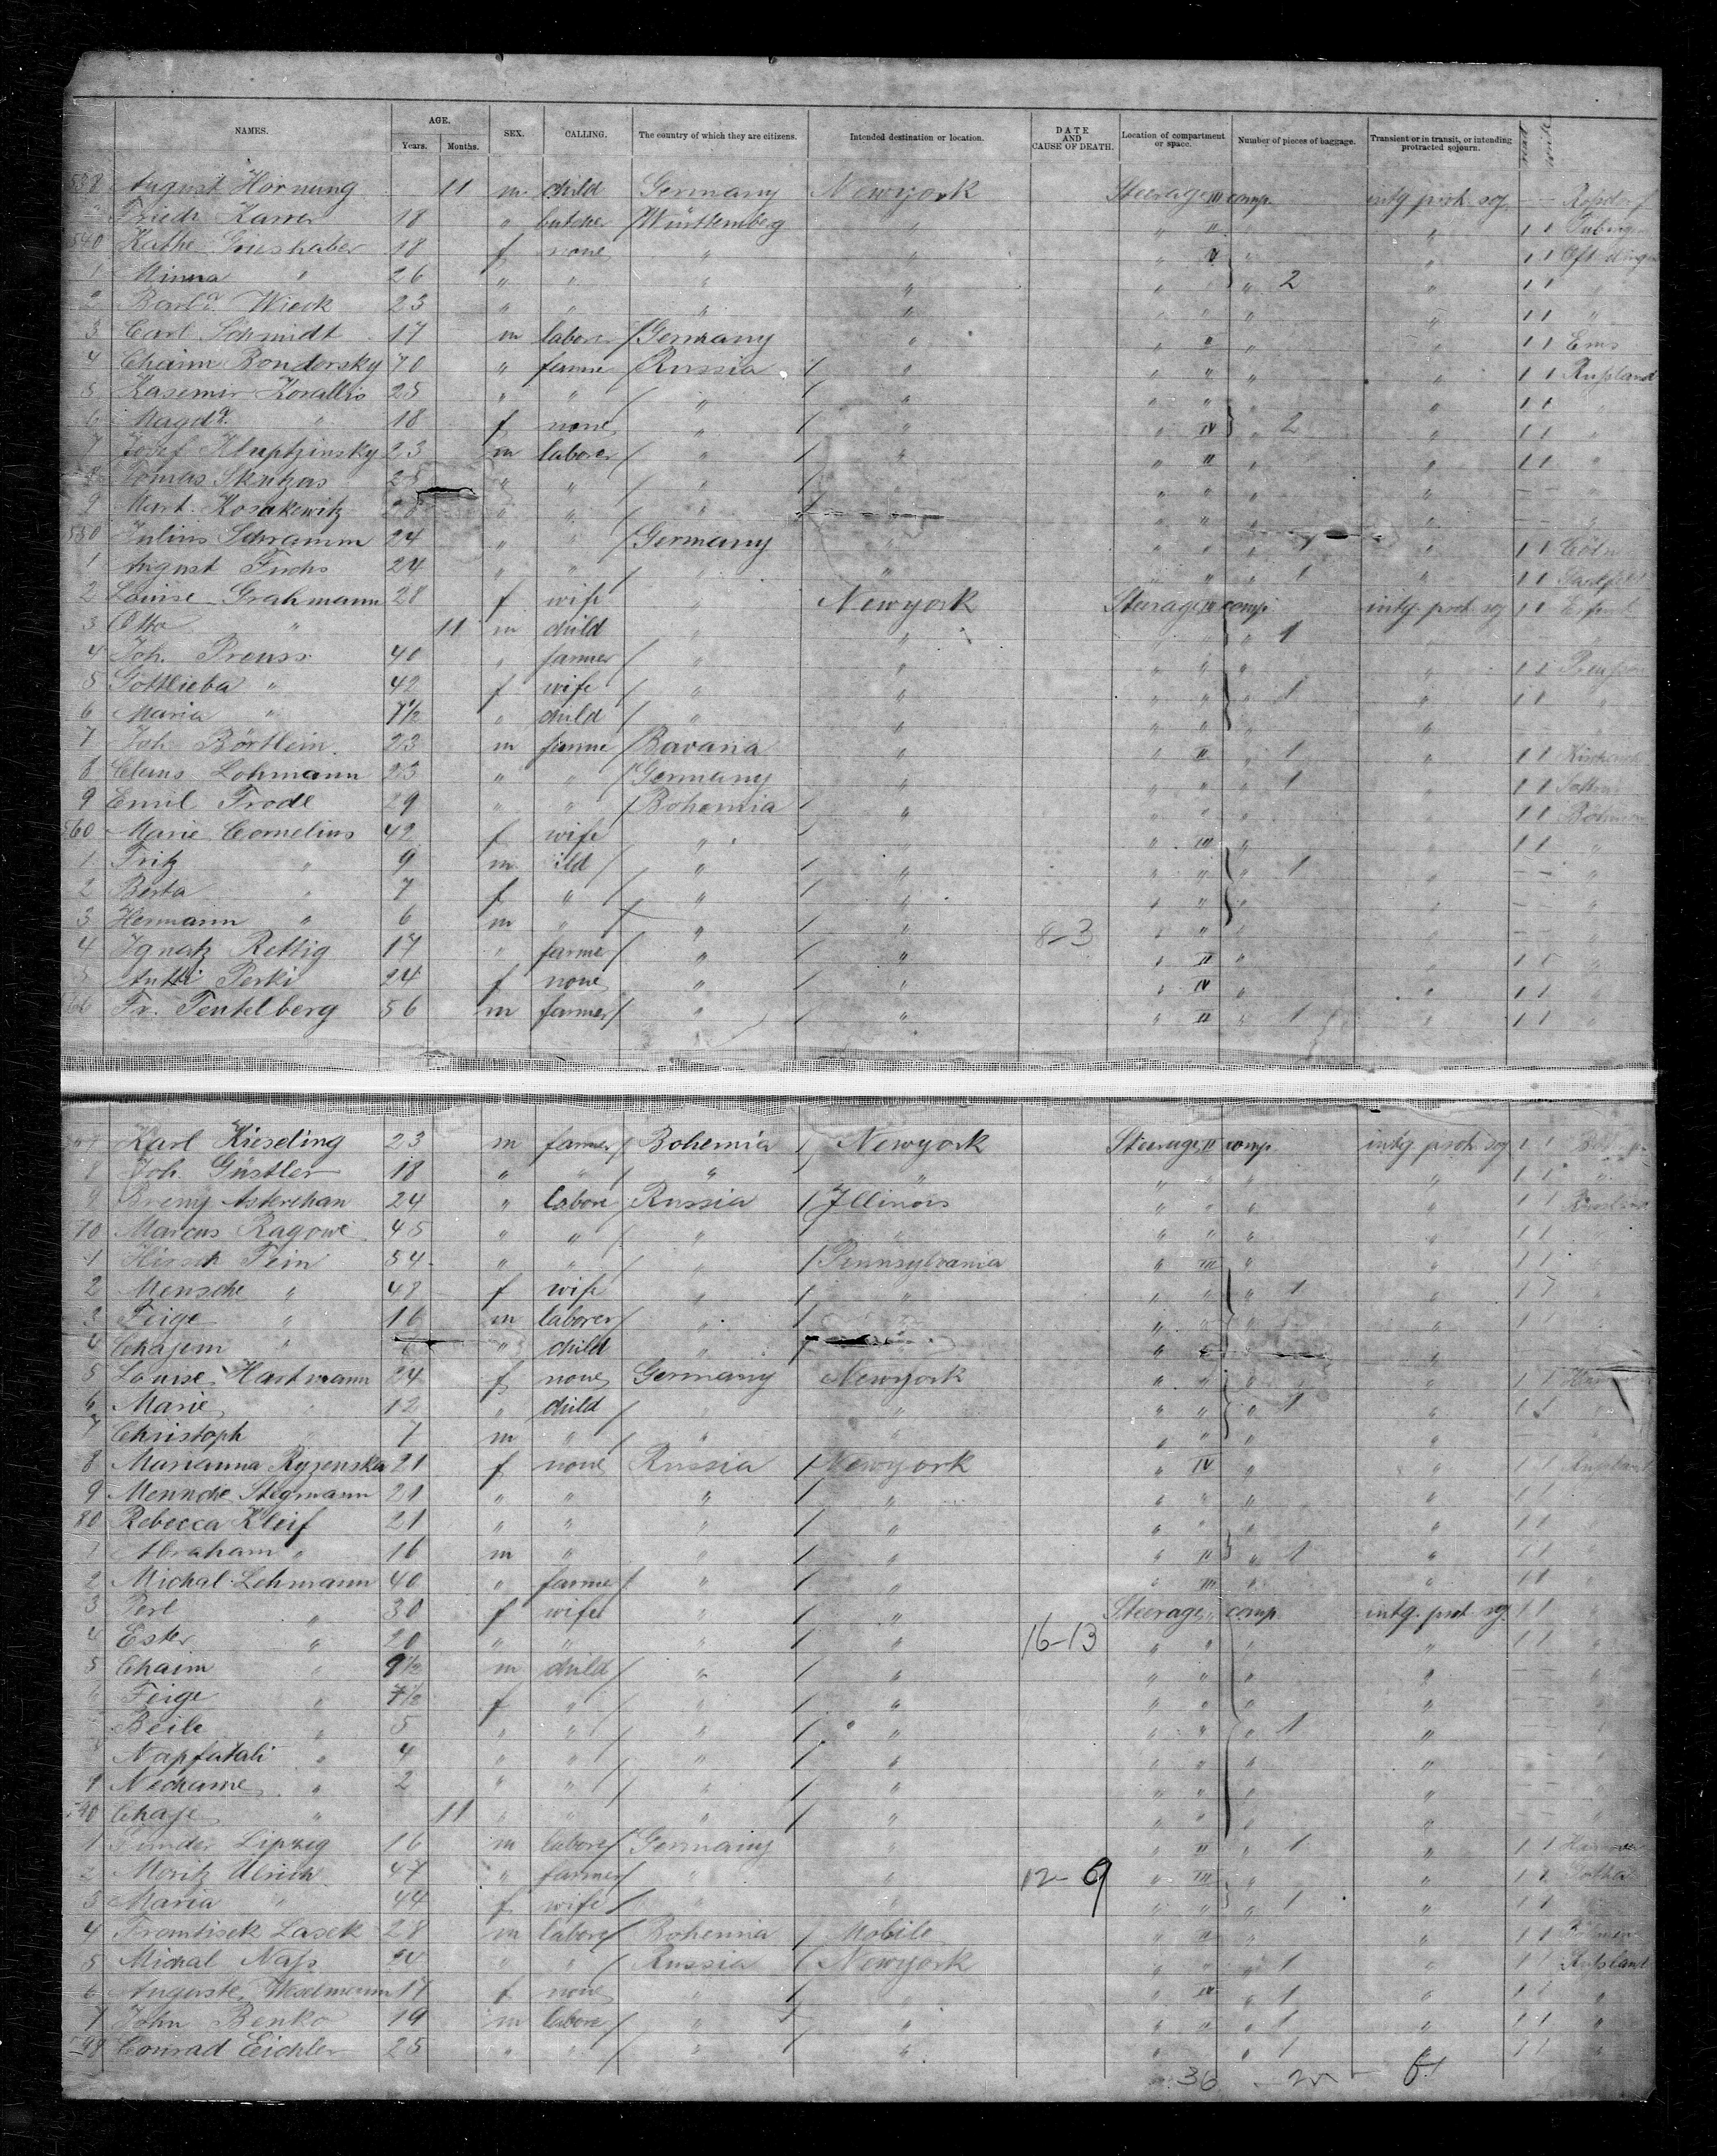 NAMES. AGE. Years. Months. SEX. CALLING. The country of which they are citizens. Intended destination or location. DATE AND CAUSE OF DEATH. Location of compartment or space. Number of pieces of baggage. Transient or in transit, or intending protracted sojourn. read write
538 August Hornung 11 m child Germany Newyork Steerage III comp. intg prot. soj. — —
Friedr Karrer 18 " butcher / Württemberg " " II " " 1 1
540 Kathe Grieshaber 18 f none " " " V " " 1 1
1 Minna " 26 " " " " " " 2 " 1 1 "
2 Barbª. Wieck 23 " " " " " " " " 1 1 "
3 Carl Schmidt 17 m laborer / Germany " " II " " 1 1 Ems
4 Chaim Bondersky 70 " farmer / Russia / " " " " " 1 1 Rußland
5 Kasemir Kovallis 25 " " / " / " " " " " 1 1 "
6 Magdª. " 18 f none " / " " IV " 2 " 1 1 "
7 Josef Kluptzinsky 23 m laborer / " / " " II " " 1 1 "
8 Tomas Skritzas 25 " " / " / " " " " " — — "
9 Mart. Kosakewitz " " / " / " " " " — — "
550 Julius Schramm 24 " " / Germany " " " " 1 " 1 1 Cöln
1 August Fuchs 24 " " / " " " " " 1 " 1 1
2 Louise Grahmann 28 f wife " Newyork Steerage IV comp. intg. prot. soj 1 1 Erfurt
3 Otto " 11 m child " " " " " 1 " "
4 Joh. Preuss 40 " farmer / " " " " " " 1 1 Preußen
5 Gottlieba " 42 f wife / " " " " " 1 " 1 1 "
6 Maria " 7½ " child / " " " " " " "
7 Joh. Börtlein 23 m farmer / Bavaria " " II " 1 " 1 1
8 Claus Lohmann 23 " " / Germany " " " " 1 " 1 1
9 Emil Trodl 29 " " / Bohemia / " " " " " 1 1 Böhmen
560 Marie Cornelius 42 f wife " " " III " " 1 1 "
1 Fritz " 9 m ild / " / " " " " 1 " — — "
2 Berta " 7 f " / " / " " " " " — "
3 Hermann " 6 m " / " / " 8-3 " " " " — "
4 Ignatz Rettig 17 " farmer / " / " " II " " 1 1 "
5 Antti Perki 24 f none " / " " IV " " 1 1 "
566 Fr. Tentelberg 56 m farmer / " / " " II " 1 " 1 1 "
67 Karl Kieseling 23 m farmer / Bohemia / Newyork Steerage II comp. intg prot. soj 1 1
8 Joh. Güstler 18 " " / " / " " " " " 1 1 "
9 24 " labore Russia / Illinois " " " " 1 1 Russland
70 Marcus Ragowe 45 " " / " " " " " " 1 1 "
1 Hirsch Fein 54 " " / " / Pennsylvania " III " " 1 1 "
2 Mensche " 48 f wife " / " " " " 1 " 1 1 "
3 Feige " 16 m laborer / " / " " " " " 1 1 "
4 Chajem " 6 " child " / " " " "
5 Louise Hartmann 24 f none Germany Newyork " " " " 1 1
6 Marie " 12 " child / " " " " " 1 " 1 1 "
7 Christoph " 7 m " / " " " " " " — "
8 Marianna Ryzenska 21 f none Russia / Newyork " IV " " 1 1 Russland
9 Mennche Stegmann 21 " " " / " " " " " 1 1 "
80 Rebecca Kleif 21 " " " / " " " " " 1 1 "
1 Abraham " 16 m " " / " " II " 1 " 1 1 "
2 Michal Lehmann 40 " farmer / " / " " III " " 1 1 "
3 Perl " 30 f wife " / " Steerage " comp. intg. prot. soj. 1 1 "
4 Ester " 20 " " " / " 16-13 " " " " 1 1 "
5 Chaim " 9½ m child / " / " " " " " — "
6 Feige " 7½ f " / " / " " " " " "
Beile " 5 " " / " / " " " " 1 " "
Napfatali " 4 " " / " / " " " " " "
9 Nechame " 2 " " / " / " " " " " — — "
590 Chaje " 11 " " " / " " " " " — — "
1 Lipzeg 16 m labore / Germany " " II " 1 " 1 1
2 Moritz Ulrich 47 " farmer / " " 12-9 " III " " 1 1 Gotha
3 Maria " 44 f wife / " " " " " 1 " 1 1
4 Frantisek Lasek 28 m labore / Bohemia / Mobile " II " " 1 1 Böhmen
5 Michal Naß " " / Russia / Newyork " " " 1 " 1 1 Rußland
6 Auguste Weselmann 17 f none " " " IV " 1 " 1 1 "
7 John Benko 19 m labore / " / " " " " 1 " 1 1 "
598 Conrad Eichler 25 " " / " " " " " 1 " 1 1 "
36